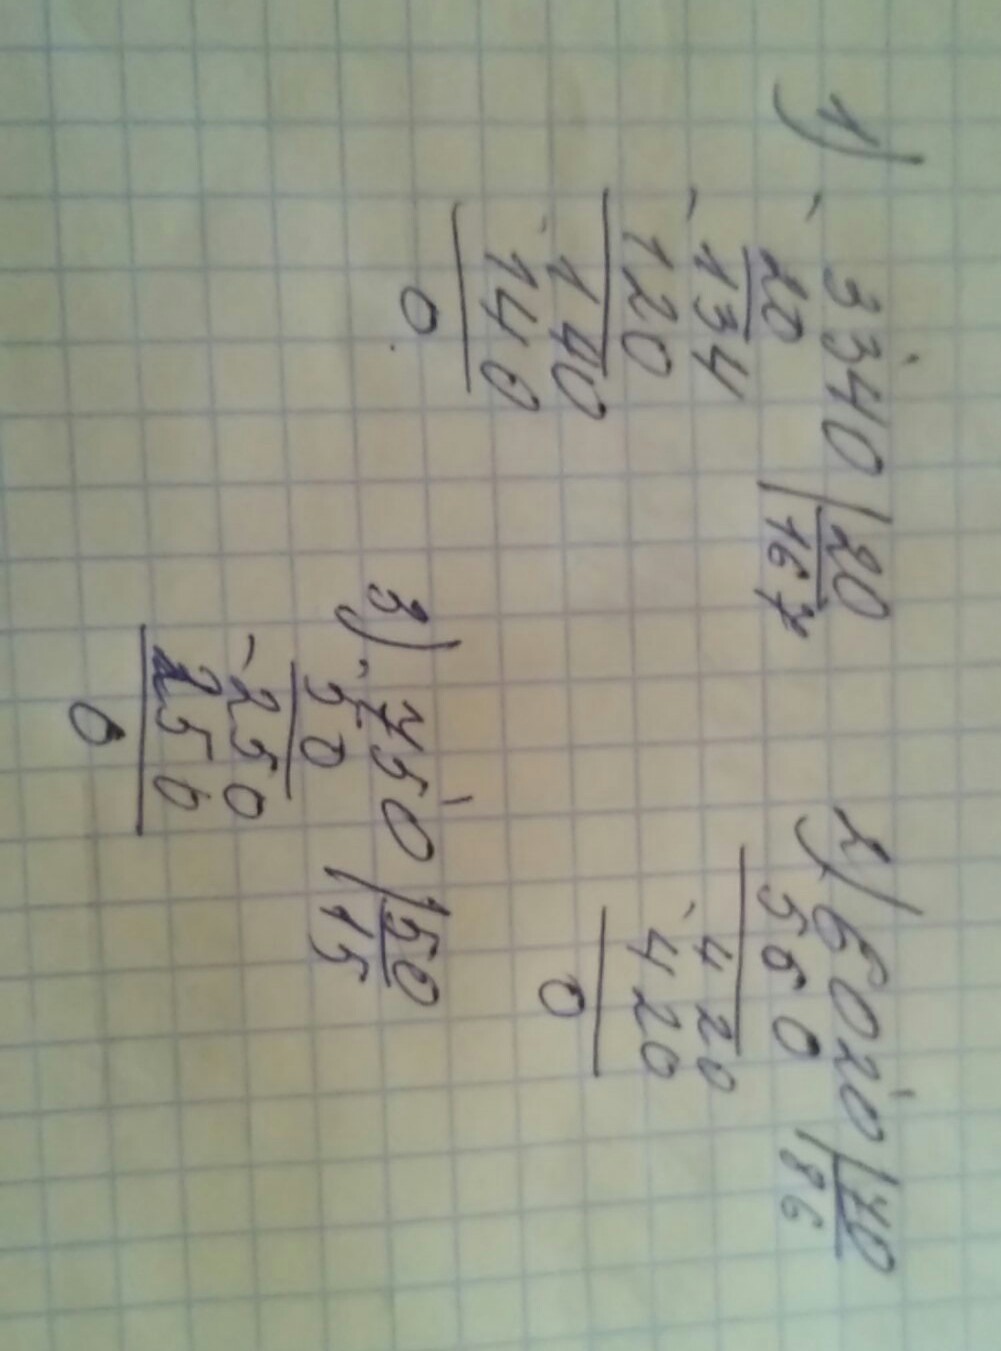 1) 3340 | 20
- 20 | 167
- 134
120
- 140
140
0
2) 6020 | 70
560 | 86
- 420
420
0
3) 750 | 50
- 50 | 15
- 250
250
0